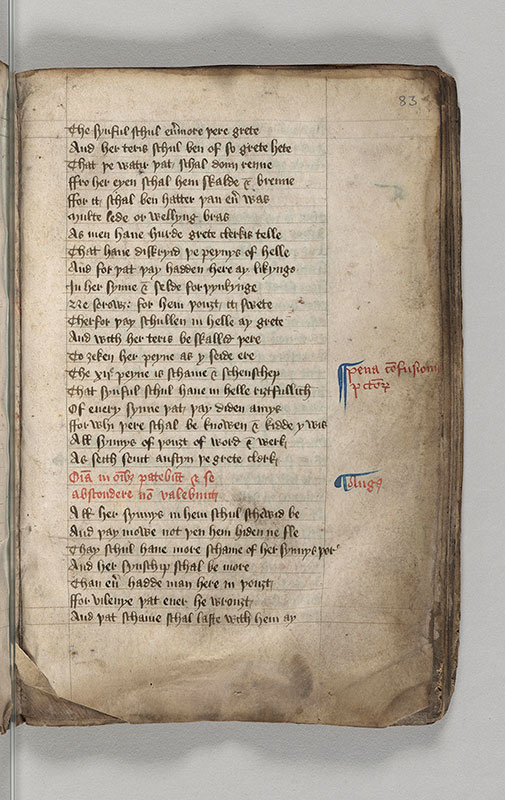 83
The synful schul eũmore þere grete
And her teris schul ben of so grete hete
That þe watir þat schal doun renne
ffro her eyen schal hem skalde & brenne
ffor it schal ben hatter þan eũ was
Multe lede or wellyng bras
As men haue hurde grete clerkis telle
That haue diskryd þe peynys of helle
And for þat þay hadden here ay likynge
In her synne & selde forþynkynge
Ne sorow: for hem þouȝt it swete
Therfor þay schullen in helle ay grete
And with her teris be skalled þere
To ȝeken her peyne as y seide ere
The xij peyne is schame & schenschep
That synful schul haue in helle riȝtfullich
Of euery synne þat þay diden amys
ffor whi þere schal be knowen & kidde y wis
All synnys of þouȝt of word & werk
As seith seint austyn þe grete clerk
pena cõfusionis
pctoꝝ
Oĩa in oĩbꝫ patebũt & se
abscondere nõ valebũt
Augꝰ
All her synnys in hem schul schewid be
And þay mowe not þen hem hiden ne fle
Thay schul haue more schame of her synnys þore
And her synschip schal be more
Than eũ hadde man here in þouȝt
ffor vilenye þat euer he wrouȝt
And þat schame schal laste with hem ay